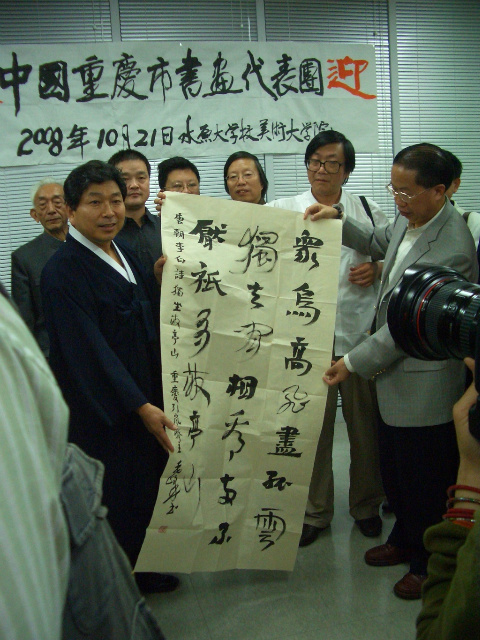 中國重慶市書画代表團迎
2008年10月21日水原大学校美術大学院
眾鳥高飛盡孤雲
獨去閑相看兩不
厭祇有敬亭山
唐朝李白詩獨坐敬亭山 重慶